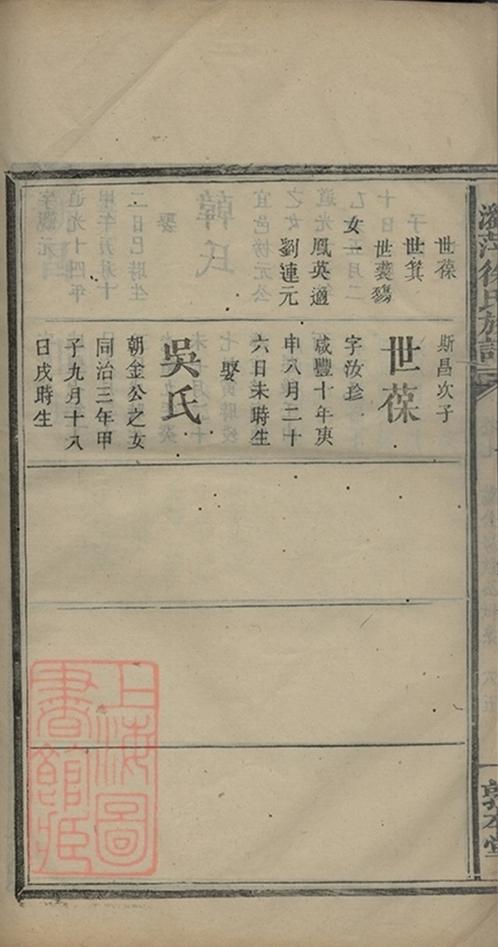 世葆
世箕
世夔殤
女一
鳳英適
劉連元
斯昌次子
世葆
字汝珍
咸豐十年庚
申八月二十
六日未時生
娶
吳氏
朝金公之女
同治三年甲
子九月十八
日戌時生
徐氏族譜
敦本堂
上海圖
書館藏